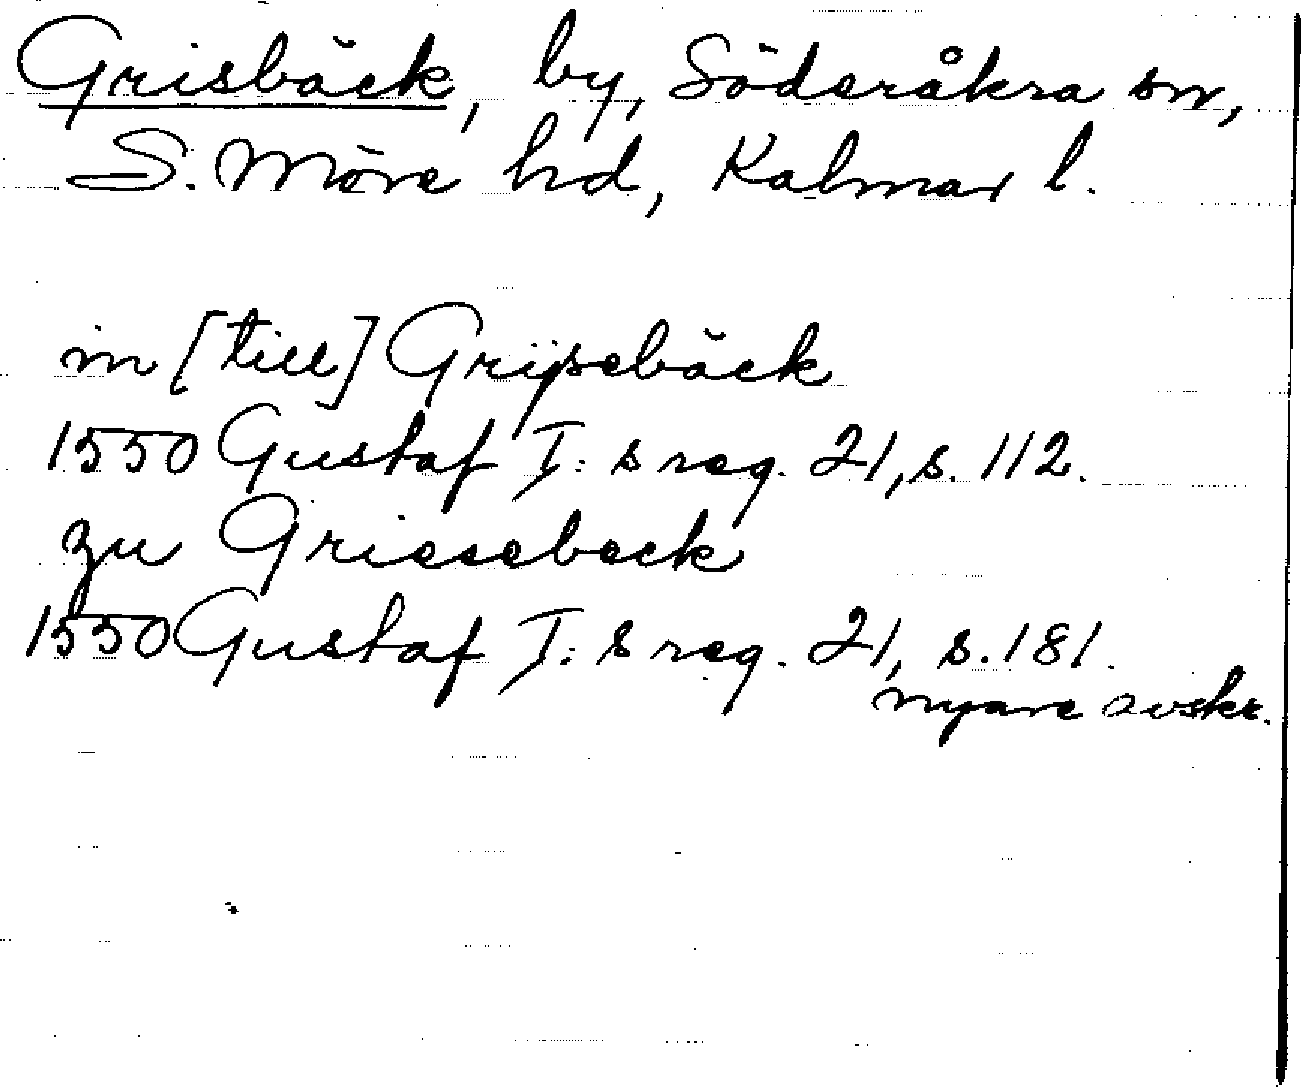 Grisbäck, by, Söderåkra sn,
S. Möre hd, Kalmar l.
in [till] Grijsebäck
1550 Gustaf I:s reg. 21, s. 112.
zu Griesebeck
1550 Gustaf I:s reg. 21, s. 181.
nyare avskr.